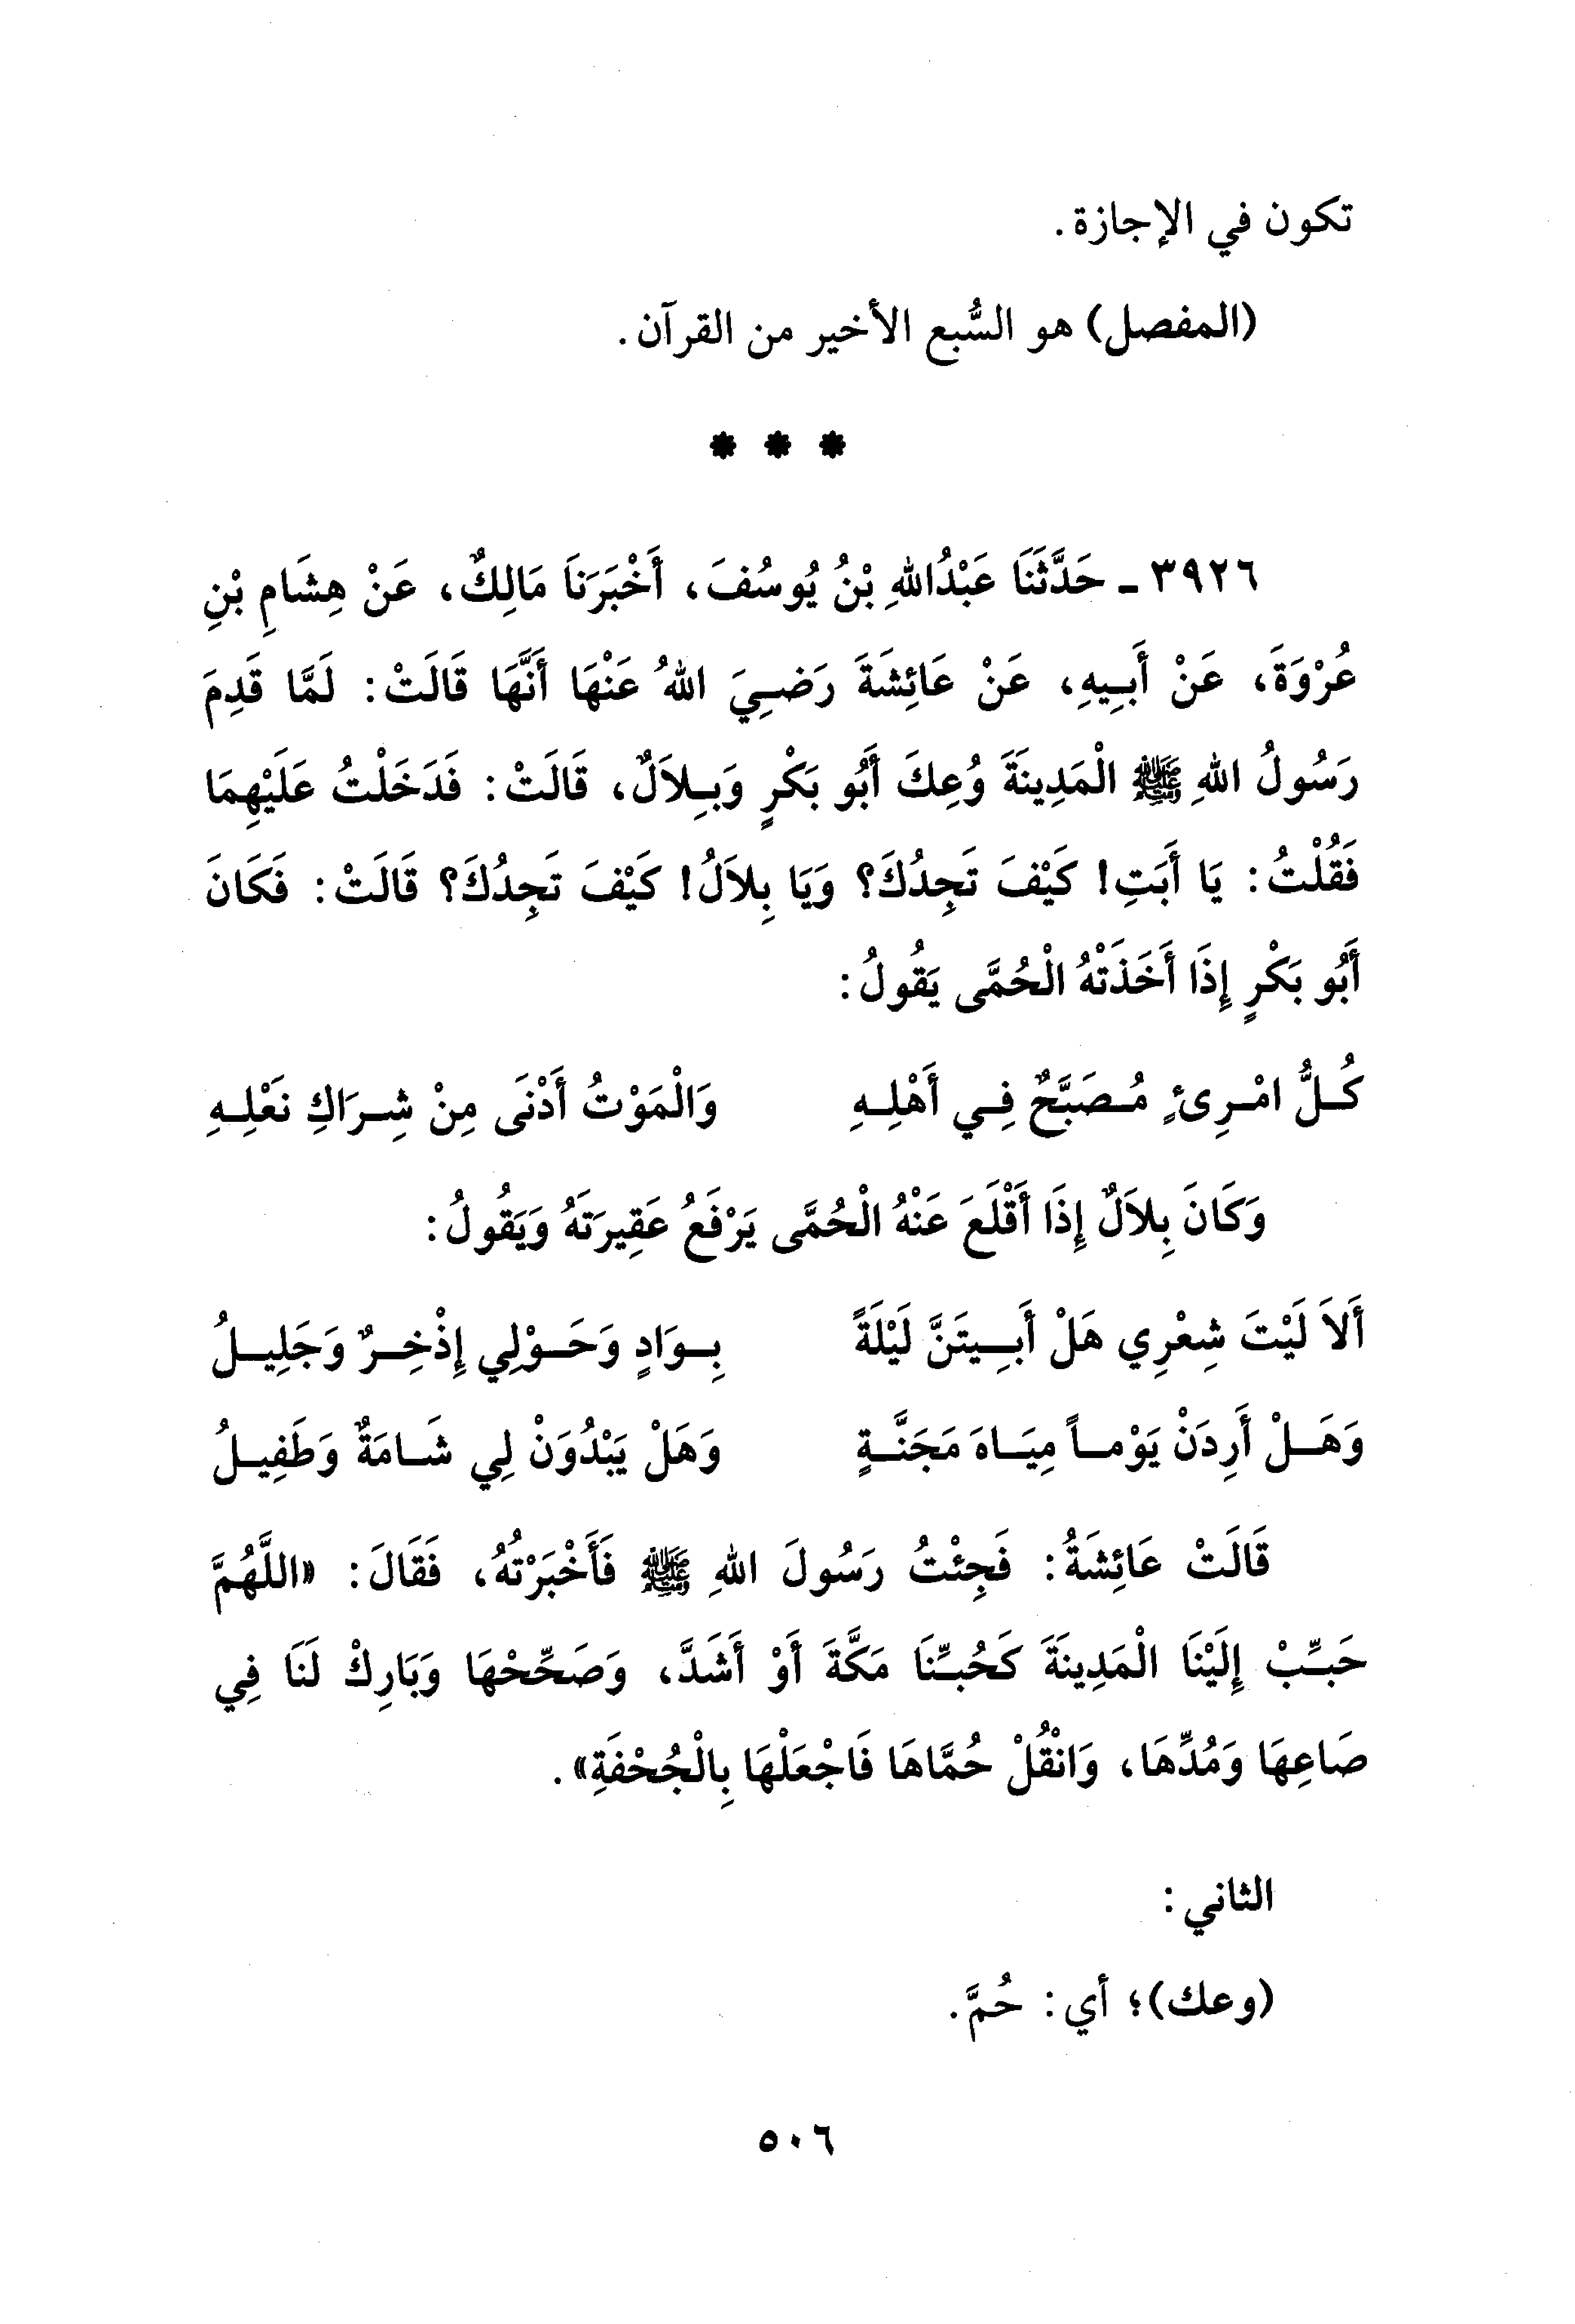 تكون في الإجازة.
(المفصل) هو السُّبع الأخير من القرآن.
* * *
٣٩٢٦ ـ حَدَّثَنَا عَبْدُاللهِ بْنُ يُوسُفَ، أَخْبَرَنَا مَالِكٌ، عَنْ هِشَامِ بْنِ
عُرْوَةَ، عَنْ أَبِيهِ، عَنْ عَائِشَةَ رَضِيَ اللهُ عَنْهَا أَنَّهَا قَالَتْ: لَمَّا قَدِمَ
رَسُولُ اللهِ ﷺ الْمَدِينَةَ وُعِكَ أَبُو بَكْرٍ وَبِلاَلٌ، قَالَتْ: فَدَخَلْتُ عَلَيْهِمَا
فَقُلْتُ: يَا أَبَتِ! كَيْفَ تَجِدُكَ؟ وَيَا بِلاَلُ! كَيْفَ تَجِدُكَ؟ قَالَتْ: فَكَانَ
أَبُو بَكْرٍ إِذَا أَخَذَتْهُ الْحُمَّى يَقُولُ:
كُلُّ امْرِئٍ مُصَبَّحٌ فِي أَهْلِهِ وَالْمَوْتُ أَدْنَى مِنْ شِرَاكِ نَعْلِهِ
وَكَانَ بِلاَلٌ إِذَا أَقْلَعَ عَنْهُ الْحُمَّى يَرْفَعُ عَقِيرَتَهُ وَيَقُولُ:
أَلاَ لَيْتَ شِعْرِي هَلْ أَبِيتَنَّ لَيْلَةً بِوَادٍ وَحَوْلِي إِذْخِرٌ وَجَلِيلُ
وَهَلْ أَرِدَنْ يَوْماً مِيَاهَ مَجَنَّةٍ وَهَلْ يَبْدُوَنْ لِي شَامَةٌ وَطَفِيلُ
قَالَتْ عَائِشَةُ: فَجِئْتُ رَسُولَ اللهِ ﷺ فَأَخْبَرْتُهُ، فَقَالَ: «اللَّهُمَّ
حَبِّبْ إِلَيْنَا الْمَدِينَةَ كَحُبِّنَا مَكَّةَ أَوْ أَشَدَّ، وَصَحِّحْهَا وَبَارِكْ لَنَا فِي
صَاعِهَا وَمُدِّهَا، وَانْقُلْ حُمَّاهَا فَاجْعَلْهَا بِالْجُحْفَةِ».
الثاني:
(وعك)؛ أي: حُمَّ.
٥٠٦